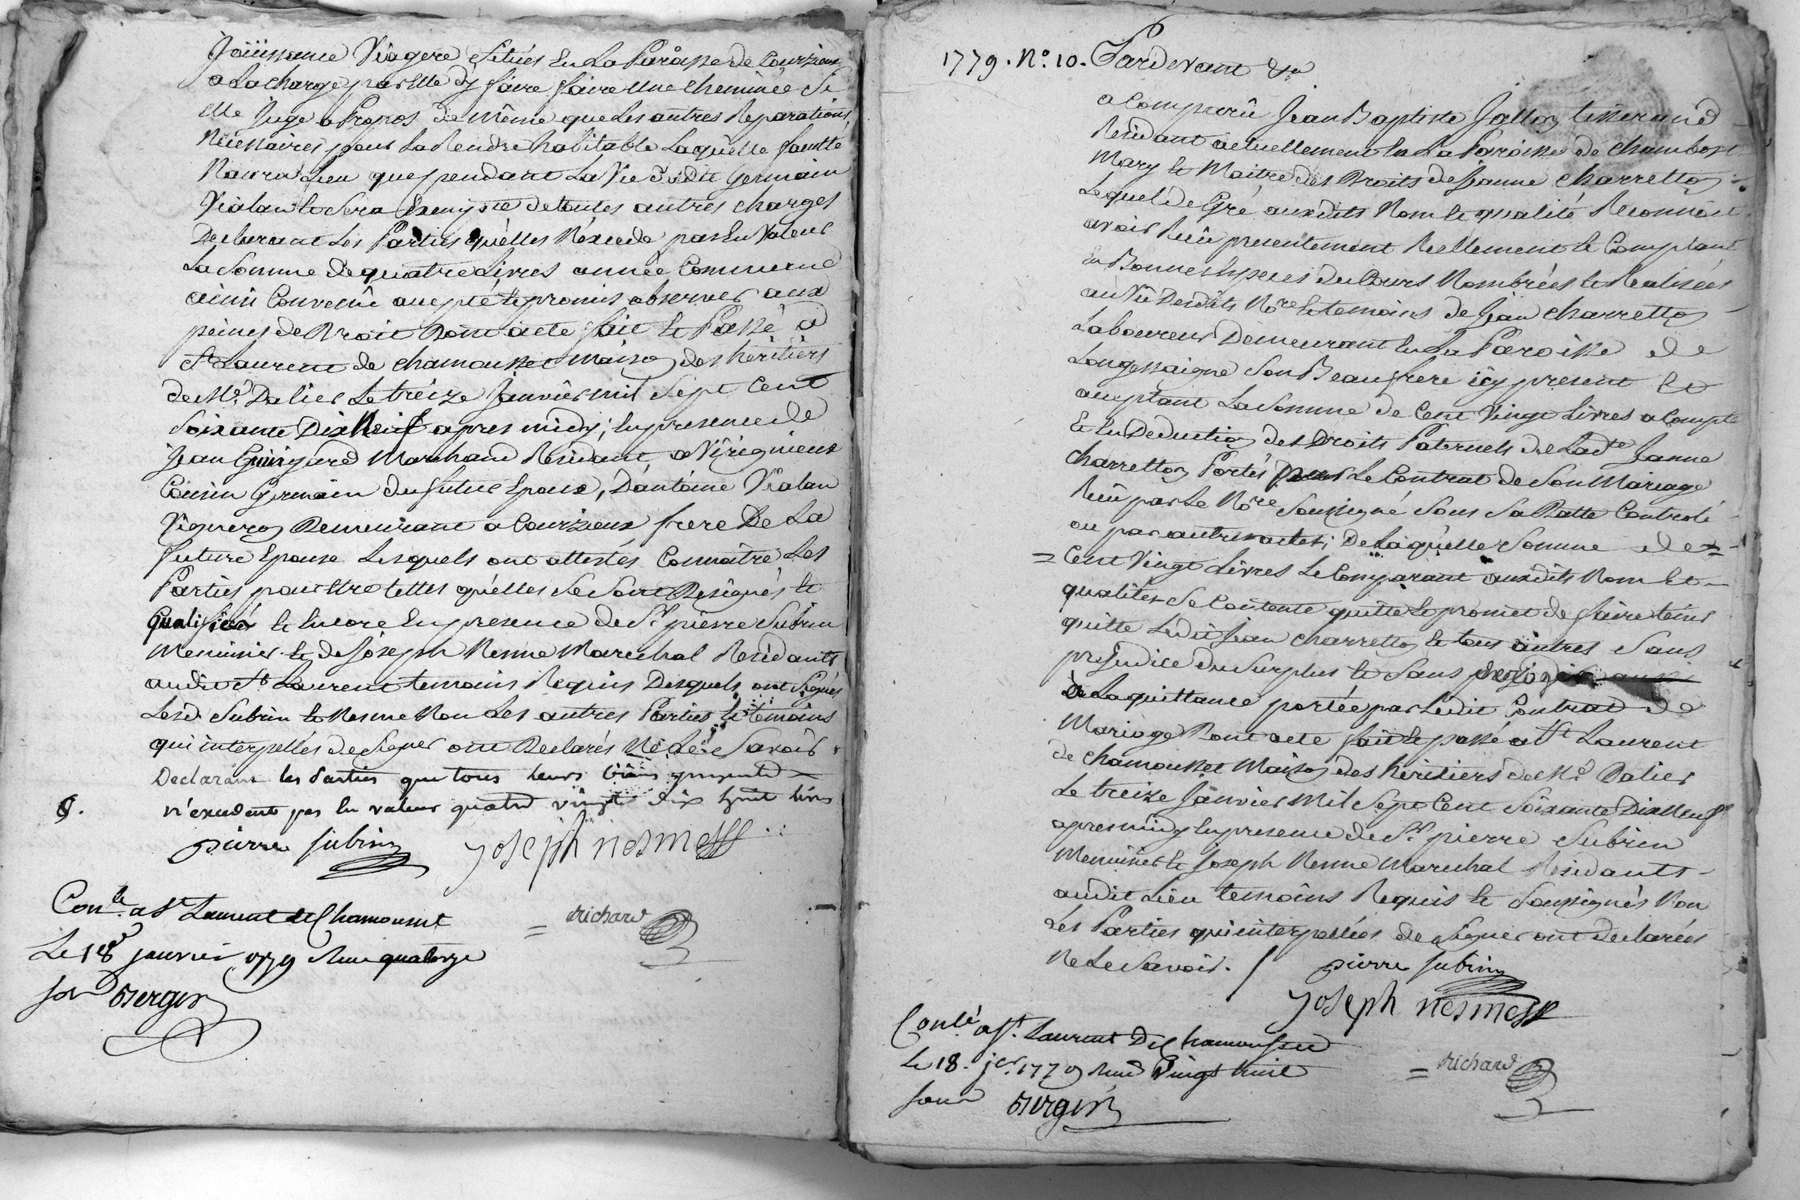 Joüissance Viagere, Situés En La Paroisse de Courzieu
a La charge par Elle dy faire faire une cheminée Si
elle Juge a Propos de Même que les autres Reparations
Nécessaires pour La Rendre habitable Laquelle faculté
N'aura Lieu que pendant La Vie dudit Germain
Vialan le Sera Exempte de toutes autres charges
Declarant Les Parties qu'elles N'éxcede pas En Valeur
La Somme de quatre Livres année Commune
ainsi Convenû accepté le promis observer aux
peines de Droit Dont acte fait le Passé a
St Laurent de chamousset maison des héritiers
de Me Dalier Le treize Janvier mil Sept Cent
Soixante Dix Neuf apres midy; En presence de
Jean Guinyard Marchand Résidant a
Cousin Germain du futur Epoux, D'antoine Vialan
Vigneron Demeurant a Courzieux, frere De La
future Epouse Lesquels ont attestés Connaitre Les
Parties pour Etre telles qu'elles Se Sont Désignés le
Qualifiés le Encore En presence de Sr pierre Subrin
Menuisier le de Joseph Nesme Marechal Residants
audit St Laurent temoins Requis Desquels ont Signés
Lesd. Subrin le Nesme Non Les autres Parties le témoins
qui interpellés de Signer ont Declarés Ne Le Savoir
Declarant les Parties que tous leurs biens
n'excedent pas en valeur quatre vingt dix huit livres
pierre subrin joseph nesme
Conlé a St Laurent de Chamousset
Le 18e janvier 1779 Reçu quatorze
sols Bergier
= richard
1779. No. 10. Pardevant &a
a Comparû Jean Baptiste Jallon tisserand
Residant actuellement En La Paroisse de chambost
Mary le Maitre des Droits de Jeanne charretton
Lequel de Gré auxdits Nom le qualité Reconnoit
avoir Reçû presentement Reellement le Comptant
En Bonnes Especes du Cours Nombrées le Realisées
au Vû Desdits Nore le temoins de Jean charretton
Laboureur Demeurant En La Paroisse de
Longessaigne Son Beaufrere icy present le
acceptant La Somme de Cent Vingt Livres a Compte
le En Déduction des Droits Paternels de Ladte Janne
charretton Portés par Le Contrat de Son Mariage
Reçû par Le Nore Soussigné Sous Sa Datte Controlé
ou par autres actes; De Laquelle Somme de
= Cent Vingt Livres Le Comparant auxdits Nom le
qualités Se Contente quitte le promet de faire tenir
quitte Ledit Jean charretton le tous autres Sans
prejudice du Surplus le Sans
de La quittance portée par Ledit Contrat de
Mariage Dont acte fait le passé a St Laurent
de chamousset Maison des héritiers de Me Dalier
Le treize Janvier Mil Sept Cent Soixante Dix Neuf
apres midy En presence de Sr pierre Subrin
Menuisier le Joseph Nesme Marechal Résidants
audit Lieu temoins Requis le Soussignés Non
Les Parties qui interpellées de Signer ont declarées
Ne Le Savoir. /
pierre subrin
joseph nesme
Conlé a St. Laurent De Chamousset
Le 18. jer. 1779 Reçu Vingt huit
sous Bergier
= richard